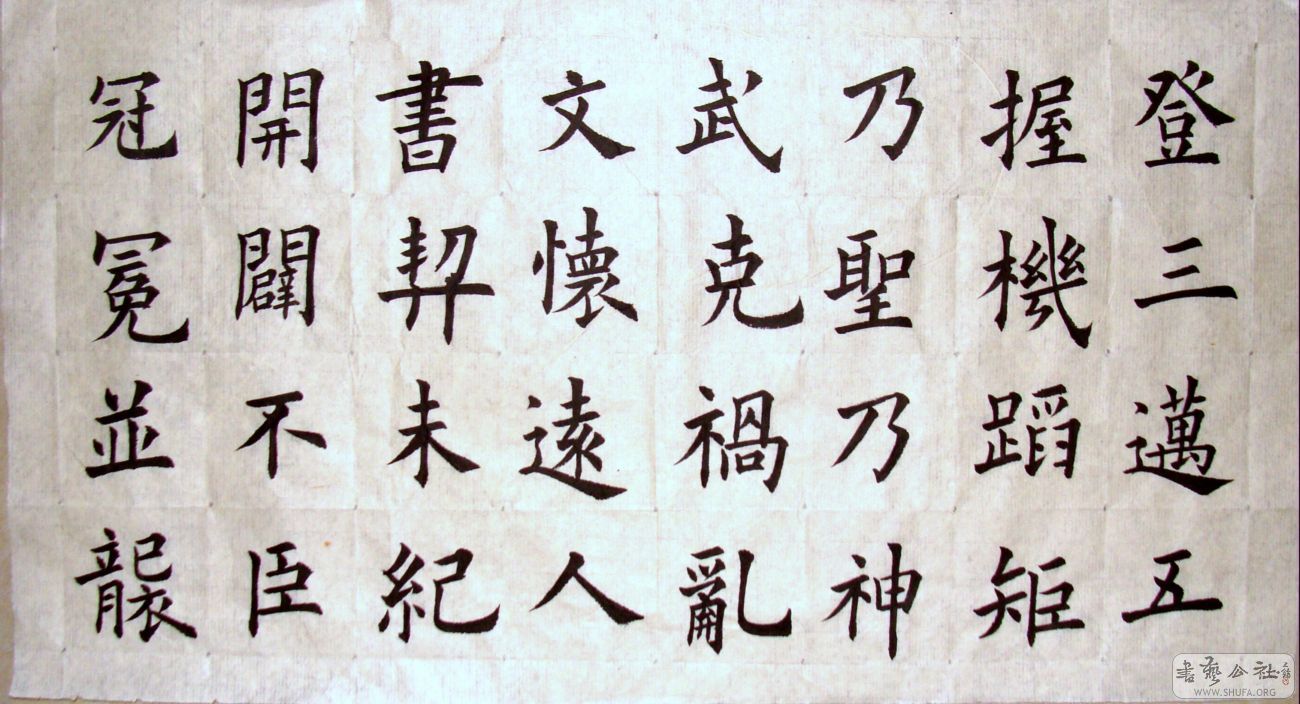 登三邁五
握機蹈矩
乃聖乃神
武克禍亂
文懷遠人
書契未紀
開闢不臣
冠冕並襲
書藝公社
WWW.SHUFA.ORG